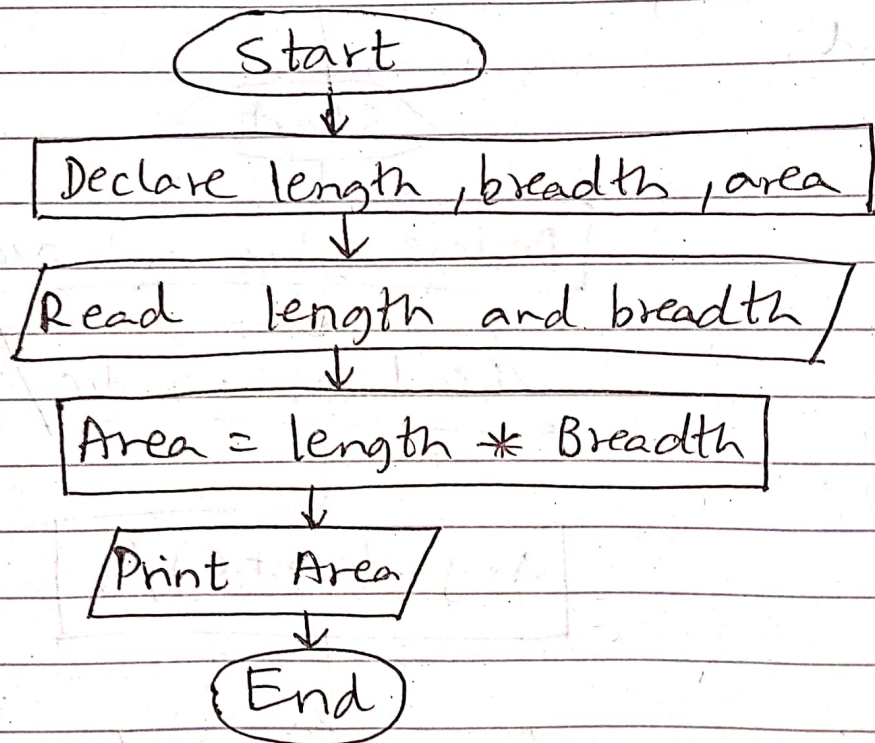 Start
Declare length , breadth , area
Read length and breadth
Area = length * Breadth
Print Area
End